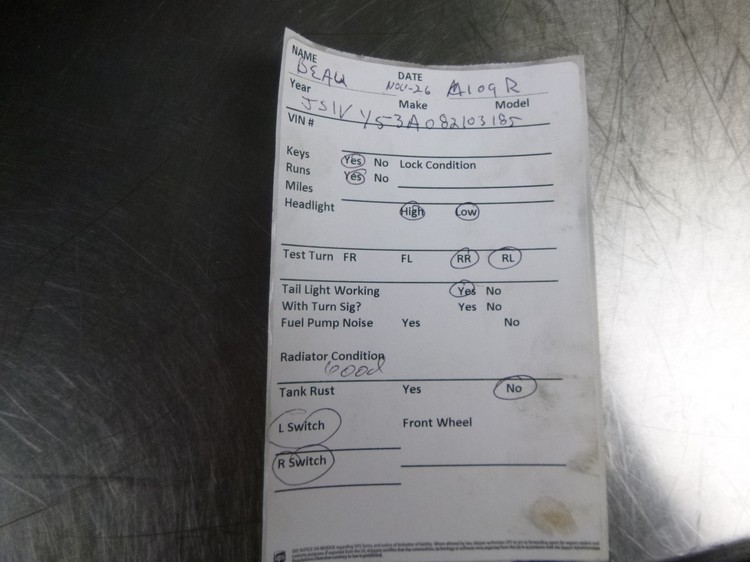 NAME
BEAU
DATE
NOV-26 M109R
Year Make Model
VIN # JS1VY53A082103185
Keys Yes No Lock Condition
Runs Yes No
Miles
Headlight High Low
Test Turn FR FL RR RL
Tail Light Working Yes No
With Turn Sig? Yes No
Fuel Pump Noise Yes No
Radiator Condition
Good
Tank Rust Yes No
L Switch Front Wheel
R Switch